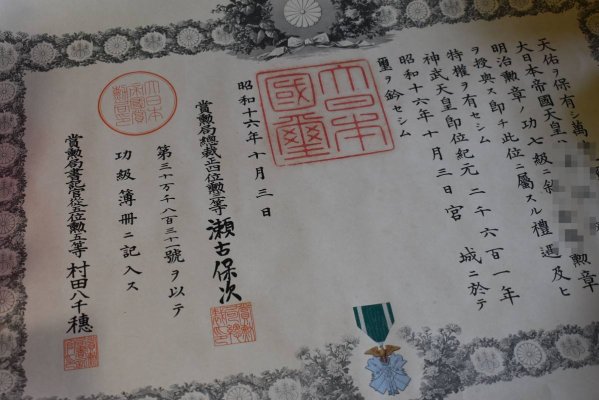 天佑ヲ保有シ萬
大日本帝國天皇ハ
勲章
明治勲章ノ功七級ニ叙
ヲ授與ス即チ此位ニ屬スル禮遇及ヒ
特權ヲ有セシム
神武天皇即位紀元二千六百一年
昭和十六年十月三日宮城ニ於テ
璽ヲ鈐セシム
大日本國璽
昭和十六年十月三日
賞勲局總裁正四位勲二等瀬古保次
號ヲ以テ
功級簿冊ニ記入ス
賞勲局書記官從五位勲五等村田八千穗